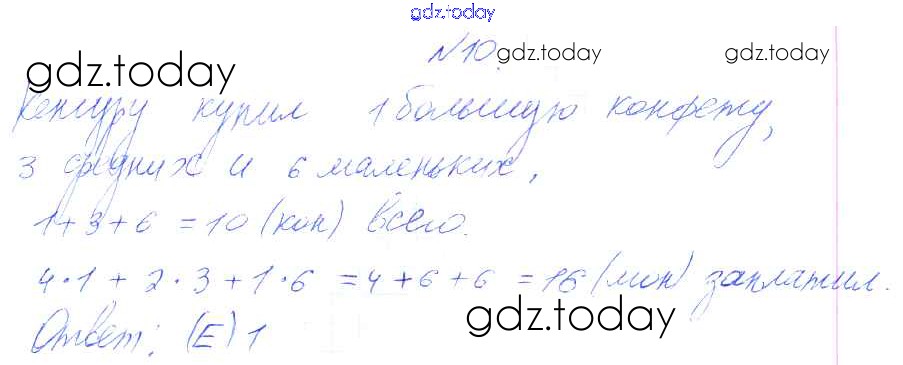 gdz.today
№10. gdz.today gdz.today
gdz.today
Кенгуру купил 1 большую конфету,
3 средних и 6 маленьких,
1+3+6 = 10 (кон) всего.
4·1 + 2·3 + 1·6 = 4+6+6 = 16 (мон) заплатил.
gdz.today
Ответ: (Е) 1